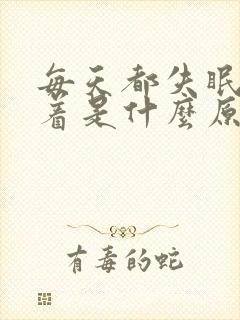 每天都失眠
着是什麼原
有毒的蛇